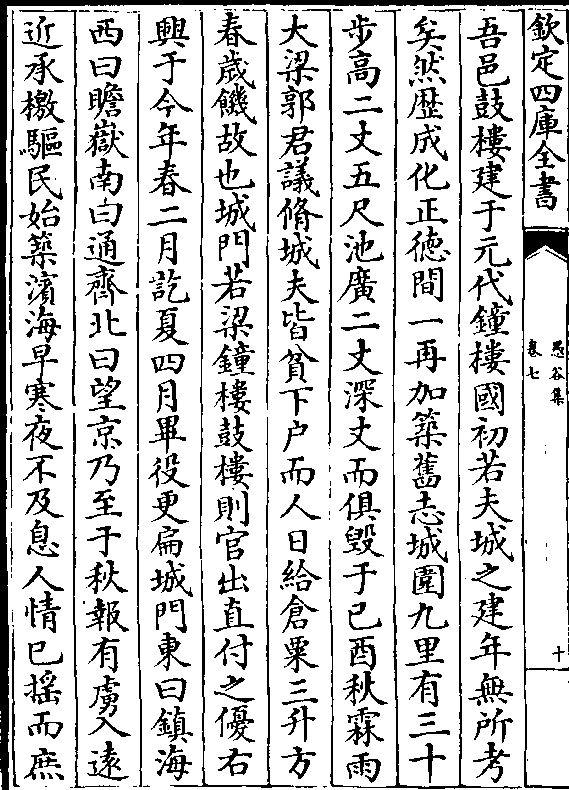 欽定四庫全書
愚谷集
卷七
十
吾邑鼓樓建于元代鐘樓國初若夫城之建年無所考
矣然歴成化正徳間一再加築舊志城圍九里有三十
步高二丈五尺池廣二丈深丈而俱毁于己酉秋霖雨
大梁郭君議脩城夫皆貧下户而人日給倉粟三升方
春歲饑故也城門若梁鐘樓鼓樓則官出直付之優右
興于今年春二月訖夏四月畢役更扁城門東曰鎮海
西曰瞻嶽南曰通齊北曰望京乃至于秋報有虜入逺
近承檄驅民始築濱海早寒夜不及息人情已揺而庶